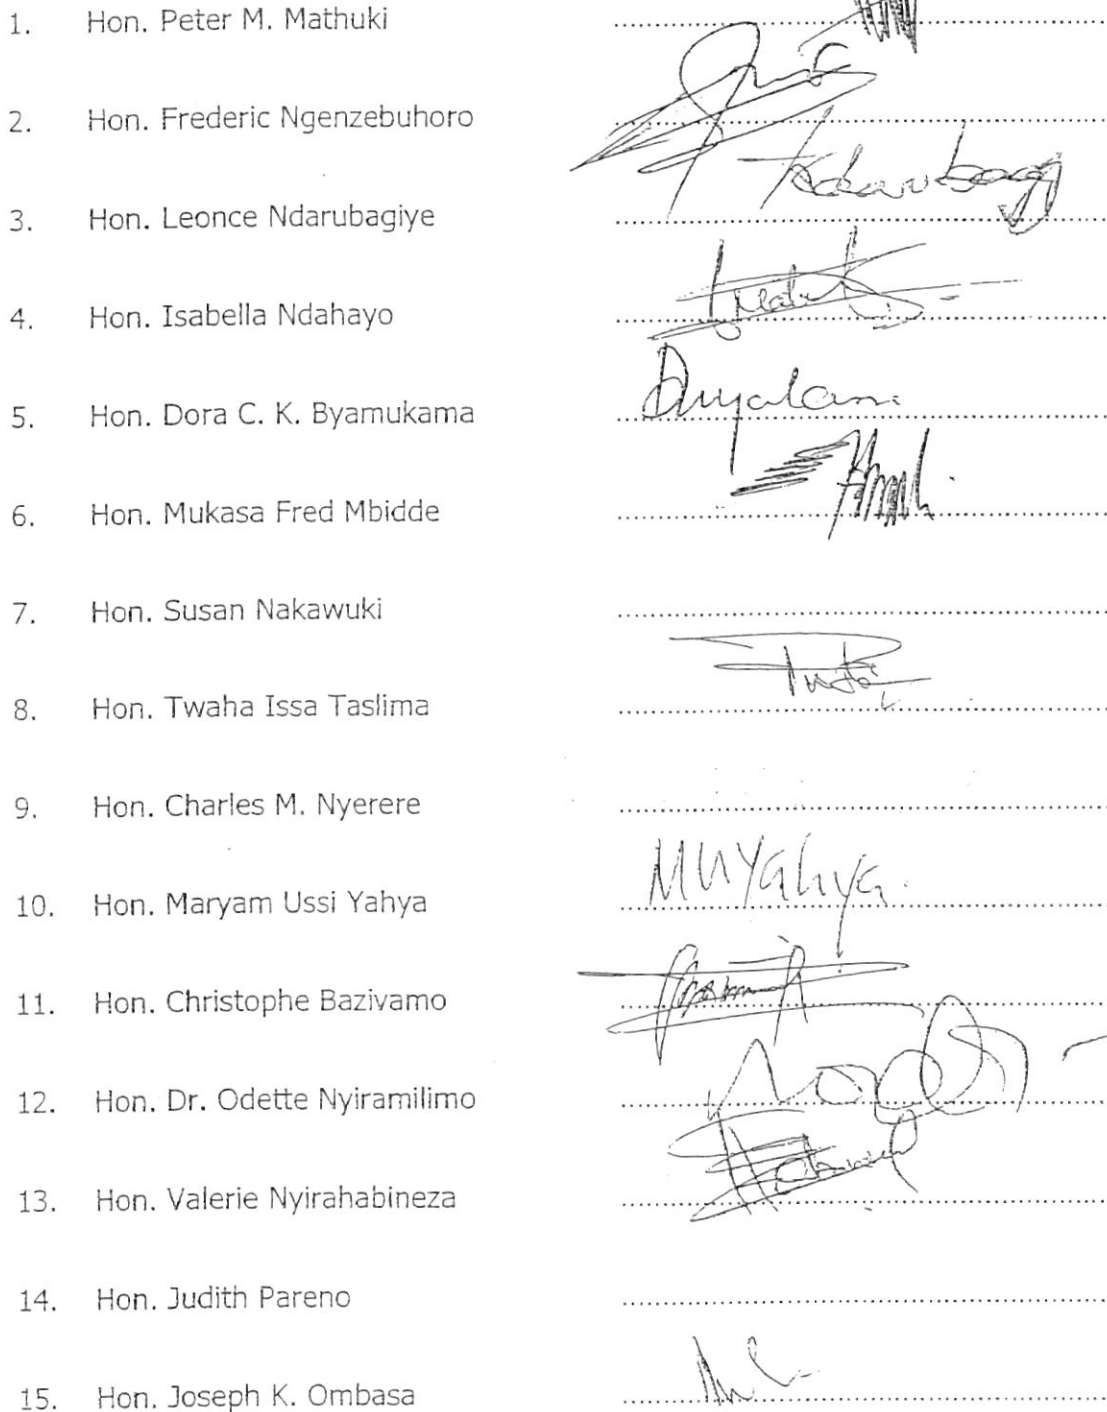 1. Hon. Peter M. Mathuki
2. Hon. Frederic Ngenzebuhoro
3. Hon. Leonce Ndarubagiye
4. Hon. Isabella Ndahayo
5. Hon. Dora C. K. Byamukama
6. Hon. Mukasa Fred Mbidde
7. Hon. Susan Nakawuki
8. Hon. Twaha Issa Taslima
9. Hon. Charles M. Nyerere
10. Hon. Maryam Ussi Yahya MUYahya.
11. Hon. Christophe Bazivamo
12. Hon. Dr. Odette Nyiramilimo
13. Hon. Valerie Nyirahabineza
14. Hon. Judith Pareno
15. Hon. Joseph K. Ombasa